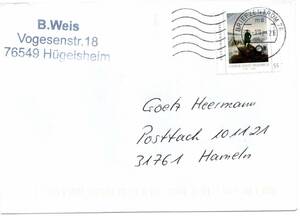 B.Weis
Vogesenstr.18
76549 Hügelsheim
BRIEFZENTRUM 76
Goetz Heermann
Postfach 101121
31761 Hameln